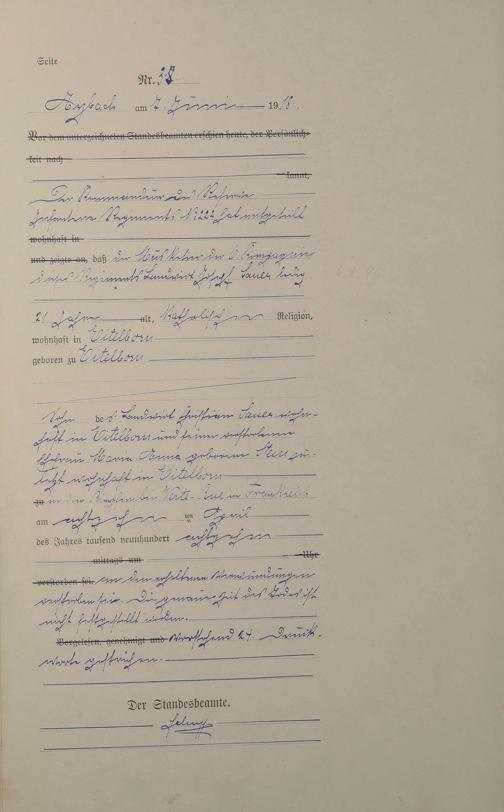 Seite
Nr. 38
Arzbach am 7. Juni 1918.
Vor dem unterzeichneten Standesbeamten erschien heute, der Persönlich-
keit nach
kannt,
Der Kommandeur des Reserve
Infanterie Regiments N 222 hat mitgeteilt
wohnhaft in
und zeigte an, daß der Musketier der 6 Kompagnie
dieses Regiments Landwirt Josef Sauer ledig
21 Jahre alt, Katholischen Religion,
wohnhaft in Eitelborn
geboren zu Eitelborn
Sohn des Landwirt Christian Sauer wohn-
haft in Eitelborn und seiner verstorbenen
Ehefrau Maria Anna geborenen zu-
letzt wohnhaft in Eitelborn
zu in den bei in Frankreich
am achtzehn ten April
des Jahres tausend neunhundert achtzehn
mittags um Uhr
verstorben sei, an den erhaltenen Verwundungen
verstorben sei. Die genaue Zeit des Todes ist
nicht festgestellt worden.
Vorgelesen, genehmigt und Vorstehend 24 Druck-
worte gestrichen.
Der Standesbeamte.